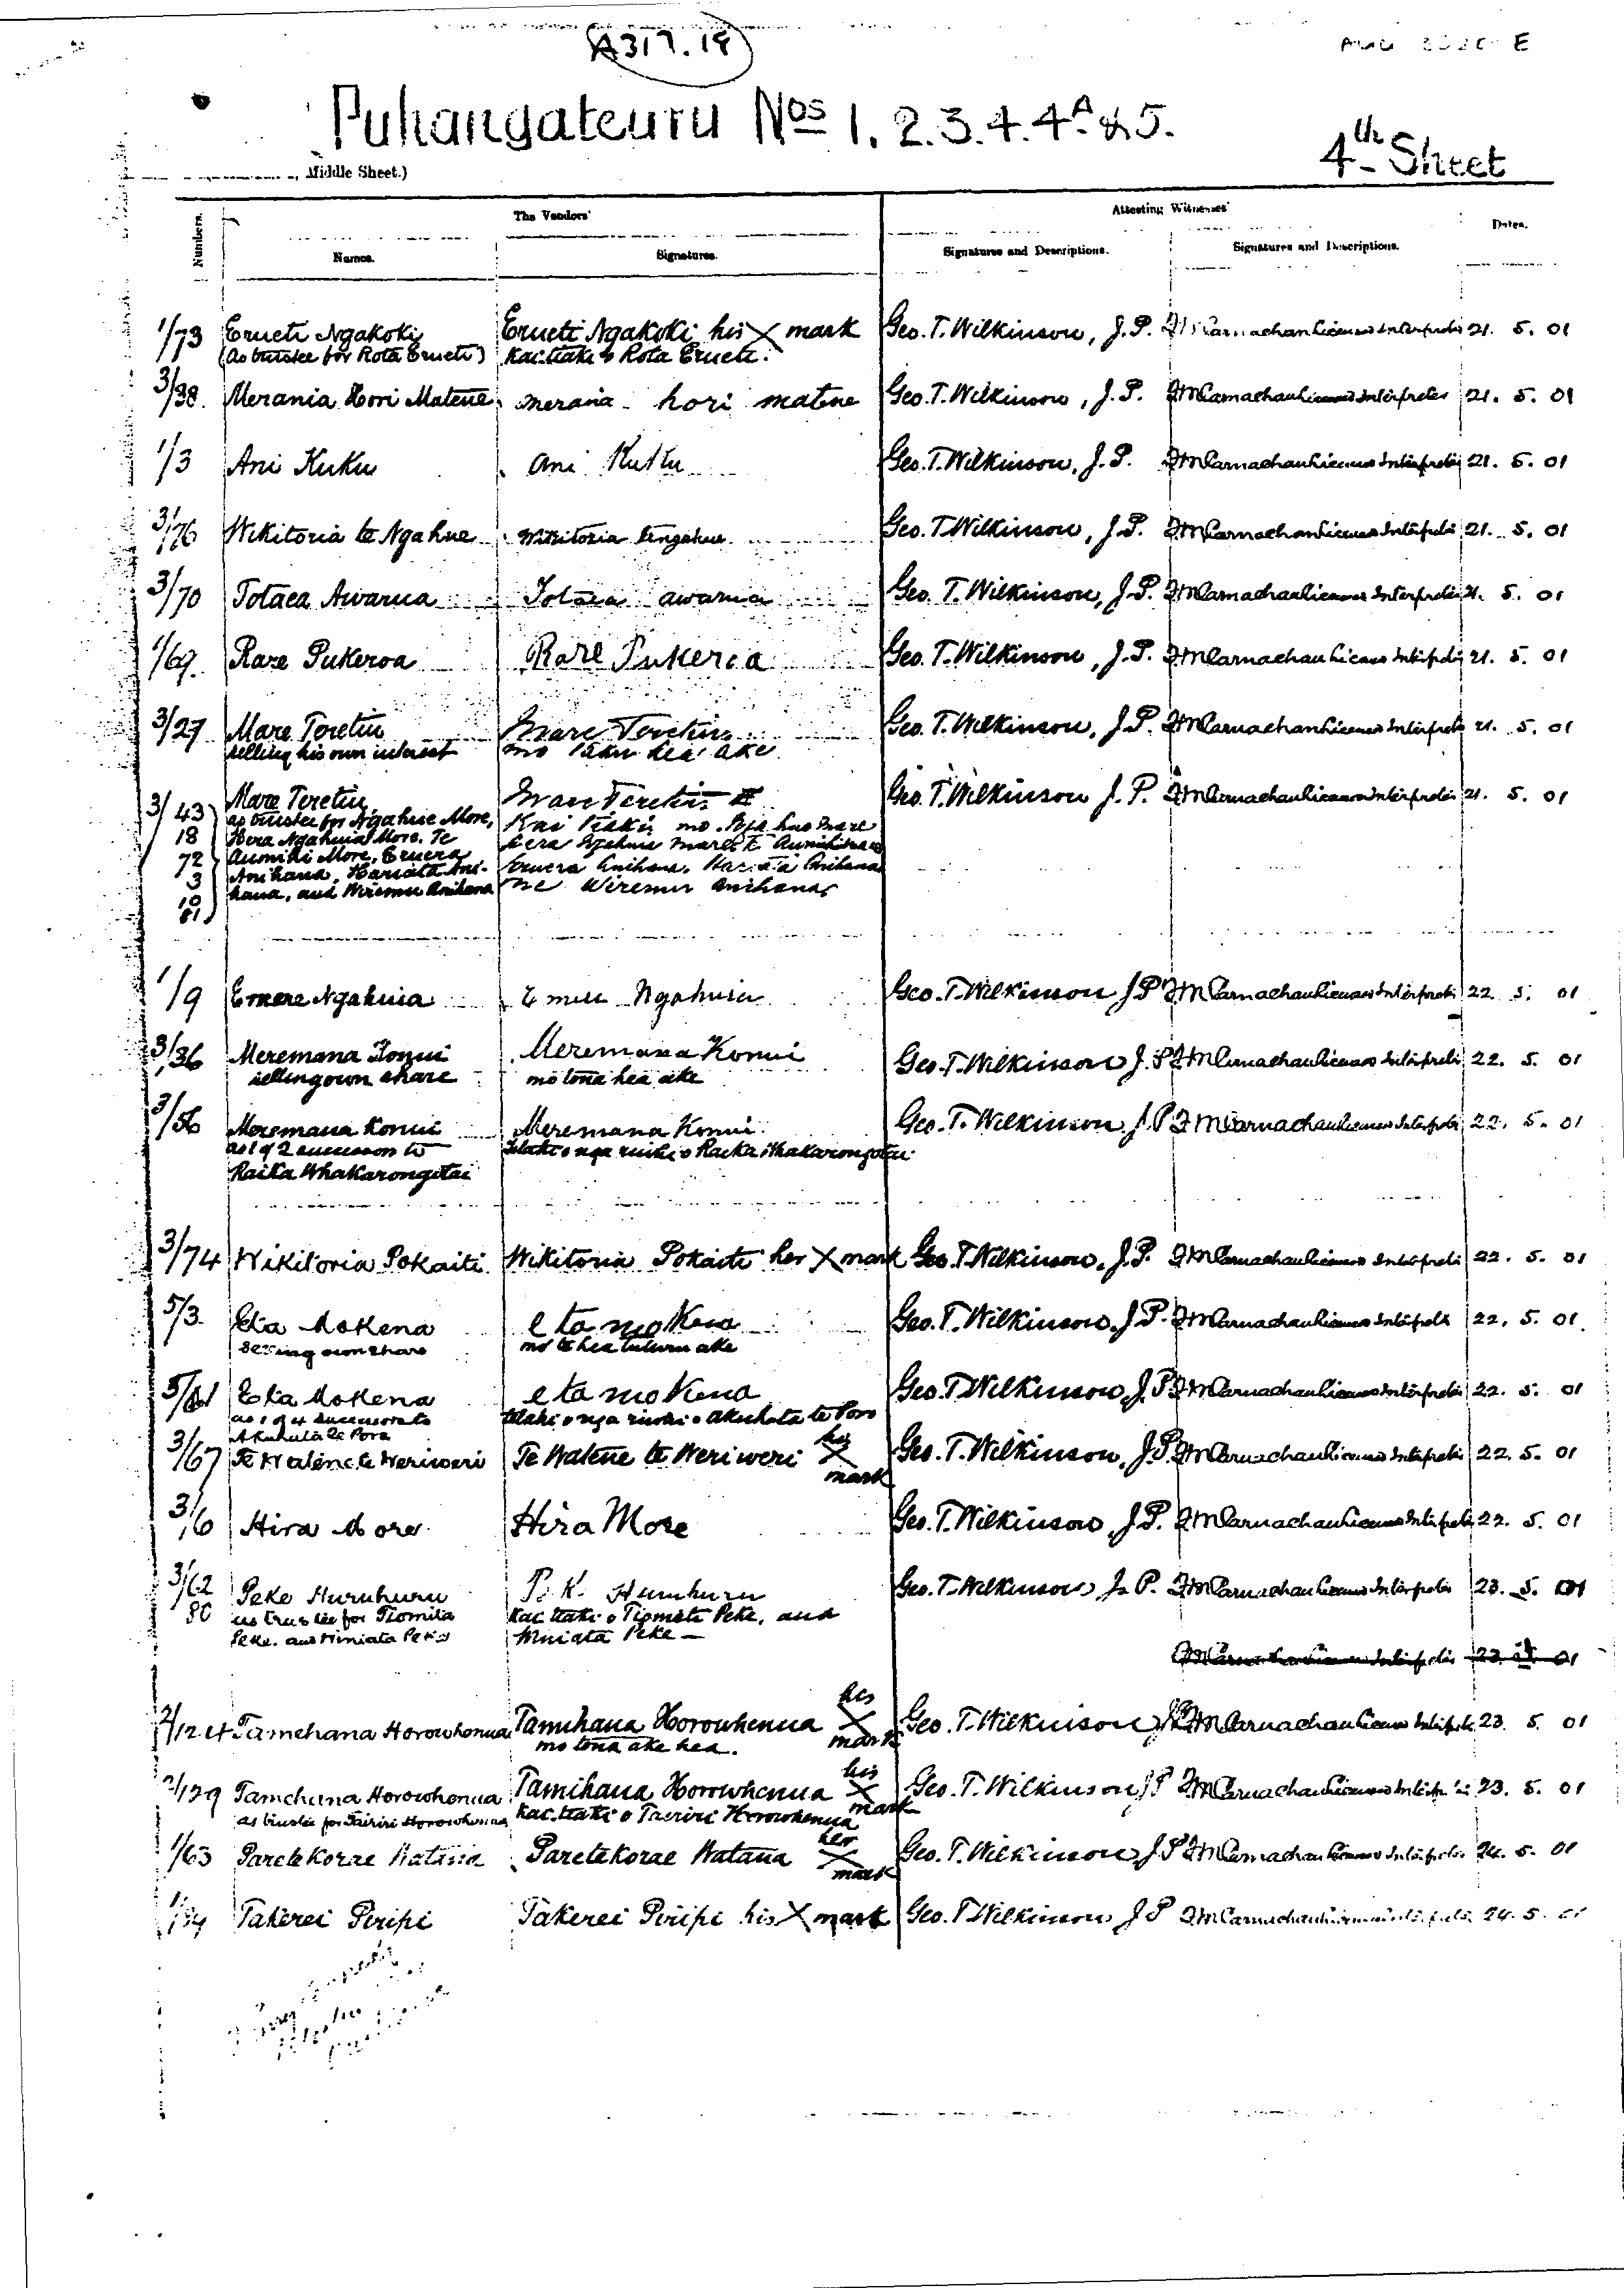 A317.19
Puhangateuru Nos 1. 2. 3. 4. 4A. & 5.
4th Sheet
Middle Sheet.)
The Vendors'
Attesting Witnesses'
Numbers. Names. Signatures. Signatures and Descriptions. Signatures and Descriptions. Dates.
1/73 Erueti Ngakoki Erueti Ngakoki his X mark Geo. T. Wilkinson, J.P. Licensed Interpreter 21. 5. 01
(as trustee for Rota Erueti) Kai tiaki o Rota Erueti.
3/38. Merania Hori Matene merania hori matene Geo. T. Wilkinson, J.P. Licensed Interpreter 21. 5. 01
1/3 Ani Kuku Ani Kuku Geo. T. Wilkinson, J.P. Licensed Interpreter 21. 5. 01
3/76 Wikitoria te Ngahue Wikitoria tengahue Geo. T. Wilkinson, J.P. Licensed Interpreter 21. 5. 01
3/70 Totaea Awarua Totaea awarua Geo. T. Wilkinson, J.P. Licensed Interpreter 21. 5. 01
1/69. Rare Pukeroa Rare Pukeroa Geo. T. Wilkinson, J.P. Licensed Interpreter 21. 5. 01
3/27 Mare Teretiu Mare Teretiu Geo. T. Wilkinson, J.P. Licensed Interpreter 21. 5. 01
selling his own interest mo taku hea ake
3/43 Mare Teretiu Mare Teretiu Geo. T. Wilkinson J.P. Licensed Interpreter 21. 5. 01
as trustee for Ngahue More, Kai tiaki mo
18 Hera Ngahuia More. Te
72 Aumihi More, Eruera
3 Anihana, Hariata Ani- Eruera Anihana, Hariata Anihana
10 hana, and Wiremu Anihana me Wiremu Anihana
81
1/9 Emere Ngahuia Emere Ngahuia Geo. T. Wilkinson J.P. Licensed Interpreter 22. 5. 01
3/36 Meremana Konui Meremana Konui Geo. T. Wilkinson J.P. Licensed Interpreter 22. 5. 01
selling own share mo tona hea ake
3/56 Meremana Konui Meremana Konui Geo. T. Wilkinson J.P. Licensed Interpreter 22. 5. 01
as 1 of 2 successors to tetahi o nga riiwhi o Raika Whakarongotai
Raika Whakarongotai
3/74 Wikitoria Pokaiti Wikitoria Pokaiti her X mark Geo. T. Wilkinson, J.P. Licensed Interpreter 22. 5. 01
5/3. Eta Mokena e ta mokena Geo. T. Wilkinson, J.P. Licensed Interpreter 22. 5. 01
Selling own share mo te hea tuturu ake
5/61 Eta Mokena e ta mokena Geo. T. Wilkinson, J.P. Licensed Interpreter 22. 5. 01
as 1 of 4 successors to tetahi o nga riiwhi o Akuhata te Poro
Akuhata te Poro
3/67 Te Watene te Weriweri Te Watene te Weriweri his X mark Geo. T. Wilkinson, J.P. Licensed Interpreter 22. 5. 01
3/16 Hira More Hira More Geo. T. Wilkinson, J.P. Licensed Interpreter 22. 5. 01
3/62 Peke Huruhuru P. K. Huruhuru Geo. T. Wilkinson, J.P. Licensed Interpreter 23. 5. 01
80 as trustee for Tiomita Kai tiaki o Tiomita Peke, and
Peke. and Miniata Peke Miniata Peke
Licensed Interpreter 23. 01
2/124 Tamehana Horowhenua Tamihana Horowhenua his X mark Geo. T. Wilkinson J.P. Licensed Interpreter 23. 5. 01
mo tona ake hea.
2/129 Tamehana Horowhenua Tamihana Horowhenua his X mark Geo. T. Wilkinson J.P. Licensed Interpreter 23. 5. 01
as trustee for Taeriri Horowhenua Kai tiaki o Taeriri Horowhenua
1/63 Paretekorae Watana Paretekorae Watana her X mark Geo. T. Wilkinson J.P. Licensed Interpreter 24. 5. 01
Takerei Piripi Takerei Piripi his X mark Geo. T. Wilkinson J.P. 24. 5. 01